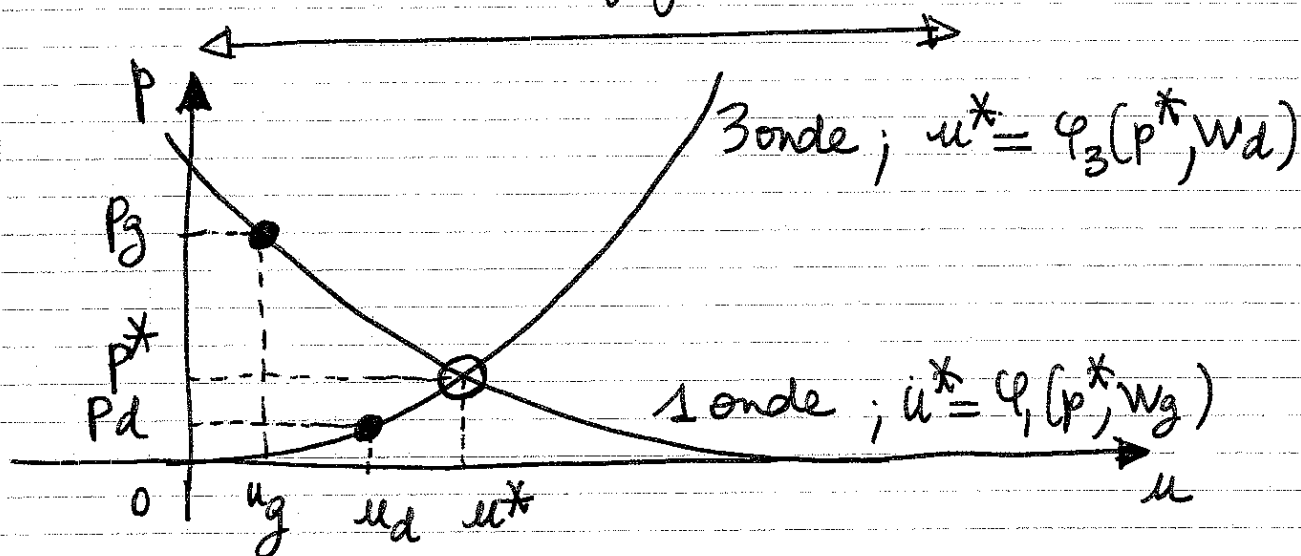 p
3 onde ; u* = φ₃(p*, W_d)
p_g
p*
p_d
1 onde ; u* = φ₁(p*, W_g)
0 u_g u_d u* u